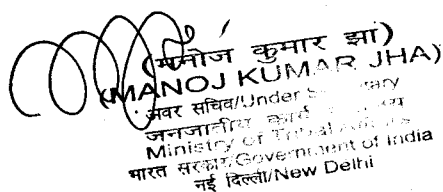 (मनोज कुमार झा)
(MANOJ KUMAR JHA)
अवर सचिव/Under
जनजातीय कार्य
Ministry of Tribal Affairs
भारत सरकार/Government of India
नई दिल्ली/New Delhi